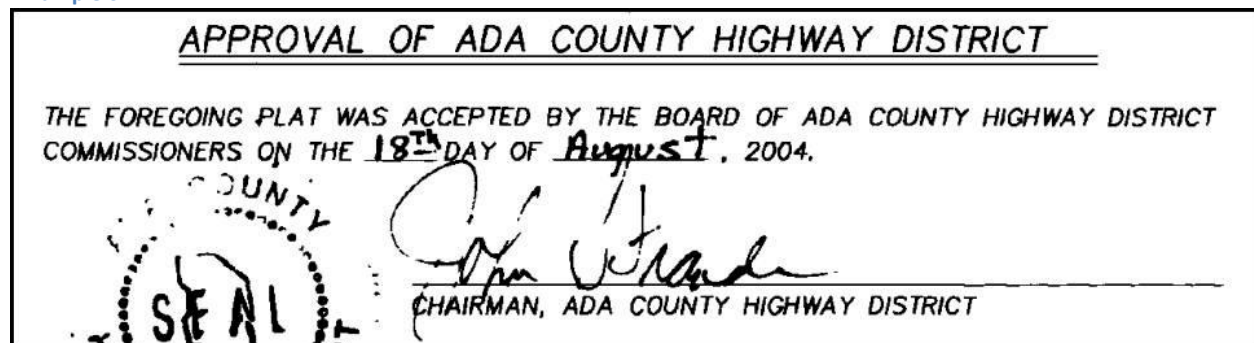 APPROVAL OF ADA COUNTY HIGHWAY DISTRICT
THE FOREGOING PLAT WAS ACCEPTED BY THE BOARD OF ADA COUNTY HIGHWAY DISTRICT
COMMISSIONERS ON THE 18Th DAY OF August, 2004.
COUNTY
SEAL
CHAIRMAN, ADA COUNTY HIGHWAY DISTRICT